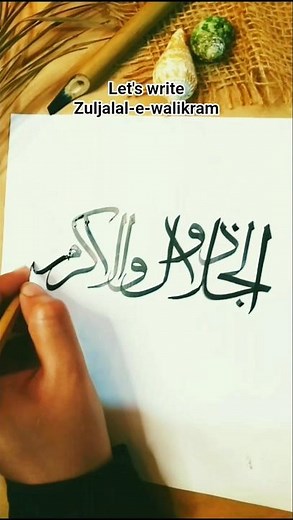 Let's write
Zuljalal-e-walikram
ذوالجلال والاکرم